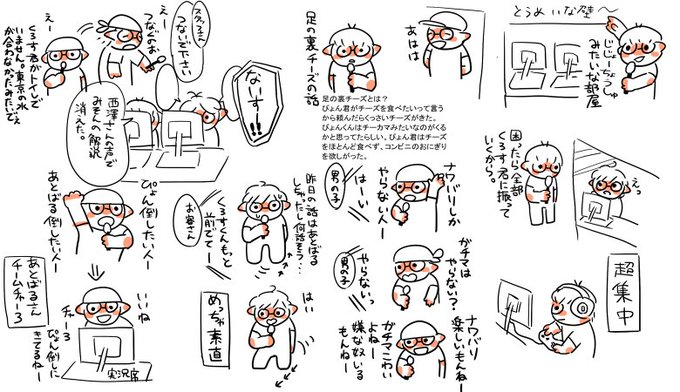 とうめいな壁〜
じじょうちょうしゅ
みたいな部屋
あはは
足の裏チーズの話
足の裏チーズとは？
ぴょん君がチーズを食べたいって言う
から頼んだらくっさいチーズがきた。
ぴょんくんはチーカマみたいなのがくる
かと思ってたらしい。ぴょん君はチーズ
をほとんど食べず、コンビニのおにぎり
を欲しがった。
困ったら全部
くろす君に振って
いくから。
えっ
ナワバリしか
やらない人ー
はーい
男の子
ガチマは
やらない？
やらないっ
男の子
超集中
ナワバリ
楽しいもんねー
ガチマこわい
よねー
嫌な奴いる
もんねー
スタッフさん
つないで下さい
つなぐのお
えー
えー
くろす君がトイレで
いません。東京の水
が合わなかったみたいでぇ
ないすー!!
西澤さんの声で
みそんの解説
消えた。
ぴょん倒したい人ー
あとばる倒したい人ー
昨日の話はあとばる
しちゃったし何話そう…
くろすくんもっと
前でてー
お客さん
はい
めっちゃ素直
あとばるさん
チームチョー3
いいね
チョー3
ぴょん倒しに
きてるねー
実況席